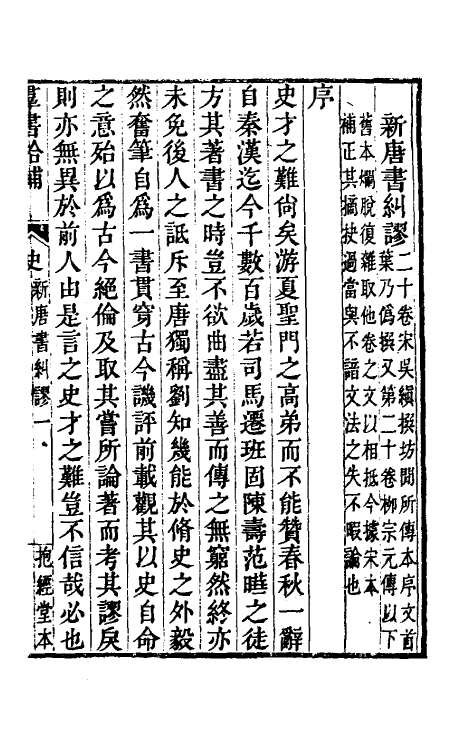 新唐書糾謬二十卷宋吳縝撰坊間所傳本序文首
葉乃僞撰又第二十卷柳宗元傳以下
舊本爛脫復雜取他卷之文以相抵今據宋本
補正其摘抉過當與不諳文法之失不暇論也
序
史才之難尙矣游夏聖門之高弟而不能贊春秋一辭
自秦漢迄今千數百歲若司馬遷班固陳壽范曄之徒
方其著書之時豈不欲曲盡其善而傳之無窮然終亦
未免後人之詆斥至唐獨稱劉知幾能於脩史之外毅
然奮筆自爲一書貫穿古今譏評前載觀其以史自命
之意始以爲古今絕倫及取其嘗所論著而考其謬戾
則亦無異於前人由是言之史才之難豈不信哉必也
羣書拾補 史 新唐書糾謬 一 抱經堂本